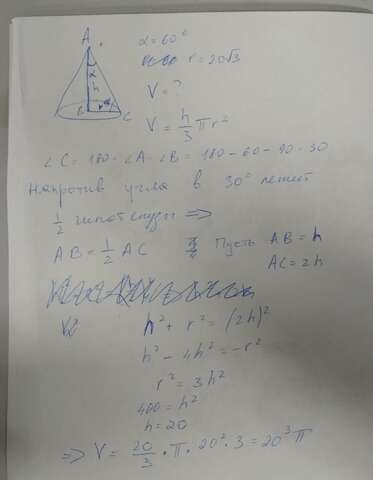 A
α = 60°
r = 20√3
α
h
V = ?
B
r
C
V = h/3 π r²
∠C = 180 - ∠A - ∠B = 180 - 60 - 90 = 30
Напротив угла в 30° лежит
1/2 гипотенузы =>
AB = 1/2 AC Пусть AB = h
AC = 2h
h² + r² = (2h)²
h² - 4h² = -r²
r² = 3h²
400 = h²
h = 20
=> V = 20/3 • π • 20² • 3 = 20³ π